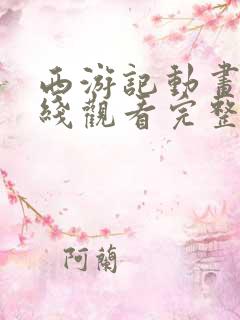 西游記動畫
綫觀看完整
阿蘭